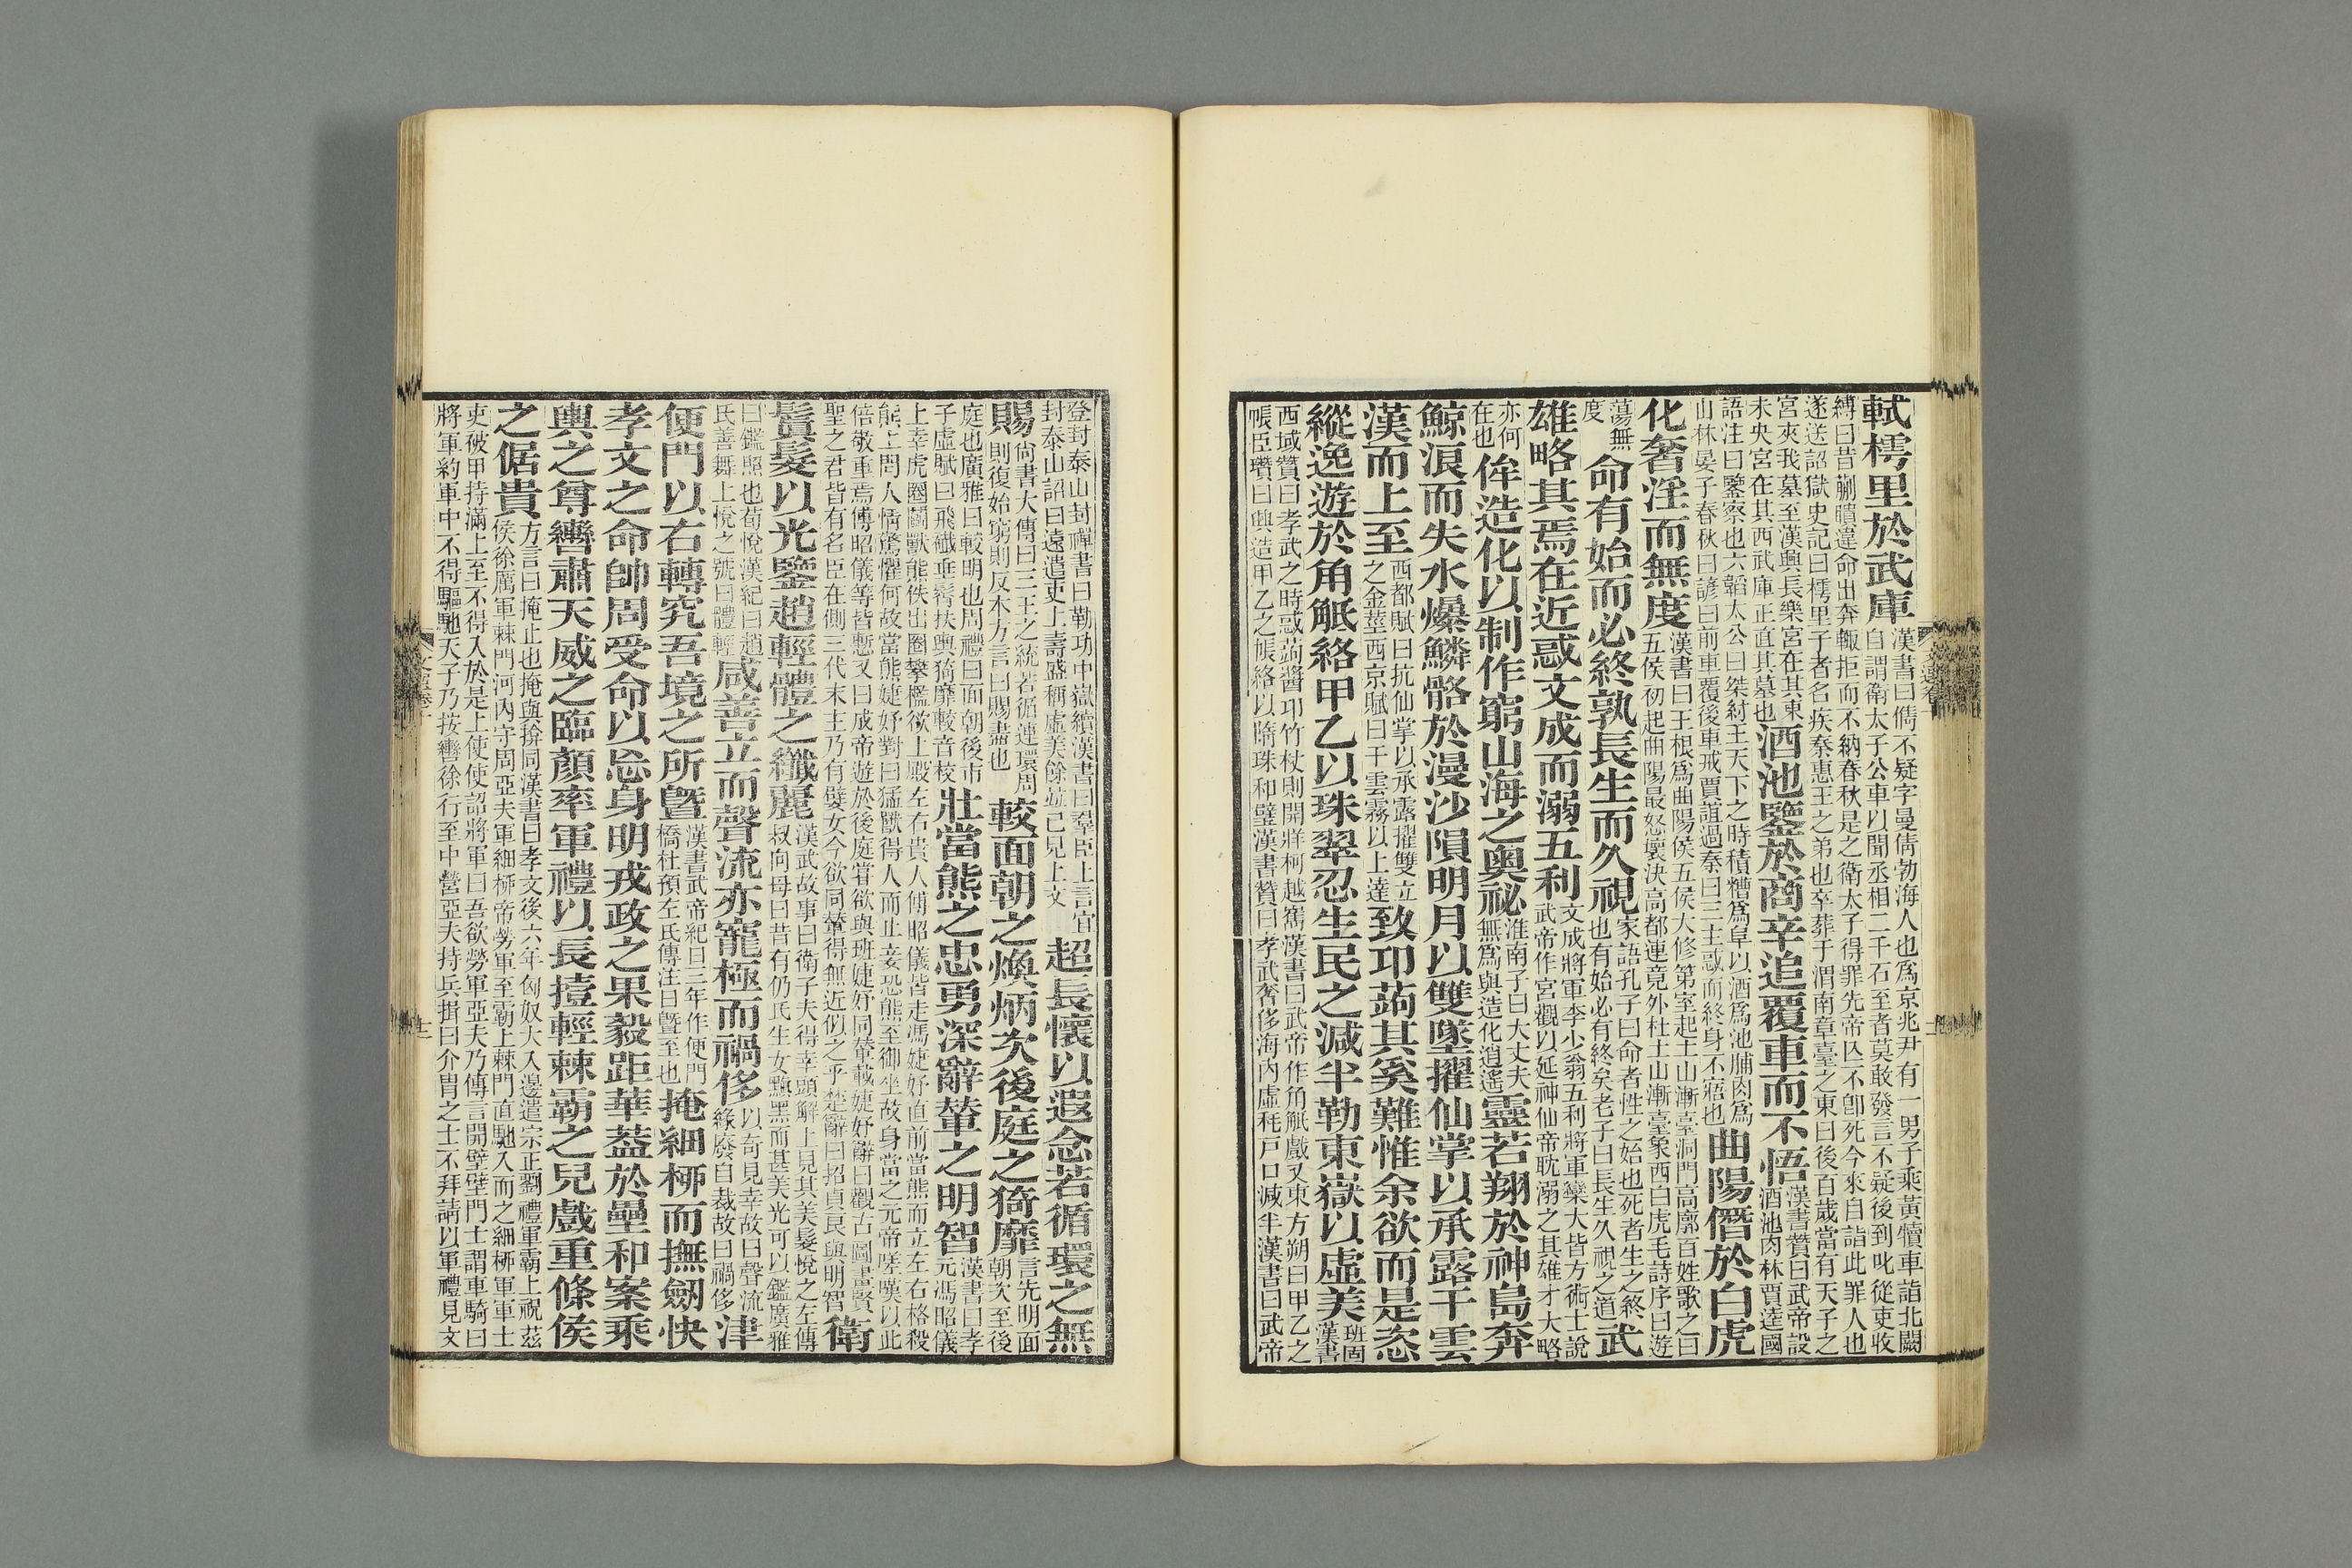 軾樗里於武庫
漢書曰儁不疑字曼倩勃海人也爲京兆尹有一男子乘黃犢車詣北闕
自謂衛太子公車以聞丞相二千石至者莫敢發言不疑後到叱從吏收
縛曰昔蒯聵違命出奔輒拒而不納春秋是之衛太子得罪先帝亡不卽死今來自詣此罪人也
遂送詔獄史記曰樗里子者名疾秦惠王之弟也卒葬于渭南章臺之東曰後百歲當有天子之
宮夾我墓至漢興長樂宮在其東
未央宮在其西武庫正直其墓也
酒池鑒於商辛追覆車而不悟
漢書贊曰武帝設
酒池肉林賈逵國
語注曰鑒察也六韜太公曰桀紂王天下之時積糟爲阜以酒爲池脯肉爲
山林晏子春秋曰諺曰前車覆後車戒賈誼過秦曰三主惑而終身不寤也
曲陽僭於白虎
化奢淫而無度
漢書曰王根爲曲陽侯五侯大修第室起土山漸臺洞門高廓百姓歌之曰
五侯初起曲陽最怒壞決高都連竟外杜土山漸臺象西白虎毛詩序曰遊
蕩無
度
命有始而必終孰長生而久視
家語孔子曰命者性之始也死者生之終
也有始必有終矣老子曰長生久視之道
武
雄略其焉在近惑文成而溺五利
文成將軍李少翁五利將軍欒大皆方術士說
武帝作宮觀以延神仙帝耽溺之其雄才大略
亦何
在也
侔造化以制作窮山海之奧祕
淮南子曰大丈夫
無爲與造化逍遙
靈若翔於神島奔
鯨浪而失水爆鱗骼於漫沙隕明月以雙墜擢仙掌以承露干雲
漢而上至
西都賦曰抗仙掌以承露擢雙立
之金莖西京賦曰干雲霧以上達
致邛蒟其奚難惟余欲而是恣
縱逸遊於角觝絡甲乙以珠翠忍生民之減半勒東嶽以虛美
班固
漢書
西域贊曰孝武之時感蒟醬邛竹杖則開牂柯越嶲漢書曰武帝作角觝戲又東方朔曰甲乙之
帳臣瓚曰興造甲乙之帳絡以隋珠和璧漢書贊曰孝武奢侈海內虛耗戶口減半漢書曰武帝
登封泰山封禪書曰勒功中嶽續漢書曰羣臣上言宜
封泰山詔曰遠遣吏上壽盛稱虛美餘並已見上文
超長懷以遐念若循環之無
賜
尙書大傳曰三王之統若循連環周
則復始窮則反本方言曰賜盡也
較面朝之煥炳次後庭之猗靡
言先明面
朝次至後
庭也廣雅曰較明也周禮曰面朝後市
子虛賦曰飛襳垂髾扶輿猗靡較音校
壯當熊之忠勇深辭輦之明智
漢書曰孝
元馮昭儀
上幸虎圈鬬獸熊佚出圈攀檻欲上殿左右貴人傅昭儀皆走馮婕妤直前當熊而立左右格殺
熊上問人情驚懼何故當熊婕妤對曰猛獸得人而止妾恐熊至御坐故身當之元帝嗟嘆以此
倍敬重焉傅昭儀等皆慙又曰成帝遊於後庭甞欲與班婕妤同輦載婕妤辭曰觀古圖畫賢
聖之君皆有名臣在側三代末主乃有嬖女今欲同輦得無近似之乎楚辭曰招貞良與明智
衛
鬒髮以光鑒趙輕體之纖麗
漢武故事曰衛子夫得幸頭解上見其美髮悅之左傳
叔向母曰昔有仍氏生女黰黑而甚美光可以鑑廣雅
曰鑑照也荀悅漢紀曰趙
氏善舞上悅之號曰體輕
咸善立而聲流亦寵極而禍侈
以奇見幸故曰聲流
緣廢自裁故曰禍侈
津
便門以右轉究吾境之所曁
漢書武帝紀曰三年作便門
橋杜預左氏傳注曰曁至也
掩細柳而撫劒快
孝文之命帥周受命以忘身明戎政之果毅距華葢於壘和案乘
輿之尊轡肅天威之臨顏率軍禮以長撎輕棘霸之兒戲重條侯
之倨貴
方言曰掩止也掩與揜同漢書曰孝文後六年匈奴大入邊遣宗正劉禮軍霸上祝茲
侯徐厲軍棘門河內守周亞夫軍細柳帝勞軍至霸上棘門直馳入而之細柳軍軍士
吏破甲持滿上至不得入於是上使使詔將軍曰吾欲勞軍亞夫乃傳言開壁壁門士謂車騎曰
將軍約軍中不得驅馳天子乃按轡徐行至中營亞夫持兵揖曰介冑之士不拜請以軍禮見文